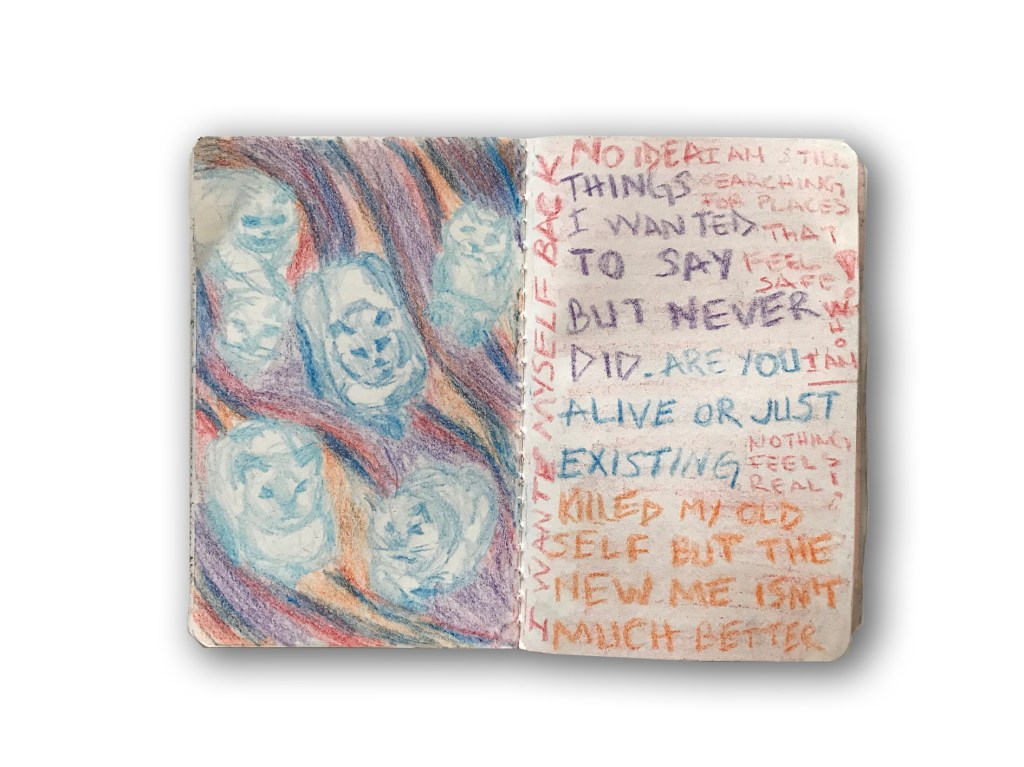 I WANTE MYSELF BACK
NO IDEA
THINGS
I WANTED
TO SAY
BUT NEVER
DID.
I AM STILL
SEARCHING
FOR PLACES
THAT
FEEL
SAFE
I AM
ARE YOU
ALIVE OR JUST
EXISTING
NOTHING
FEELS
REAL!
KILLED MY OLD
SELF BUT THE
NEW ME ISN'T
MUCH BETTER